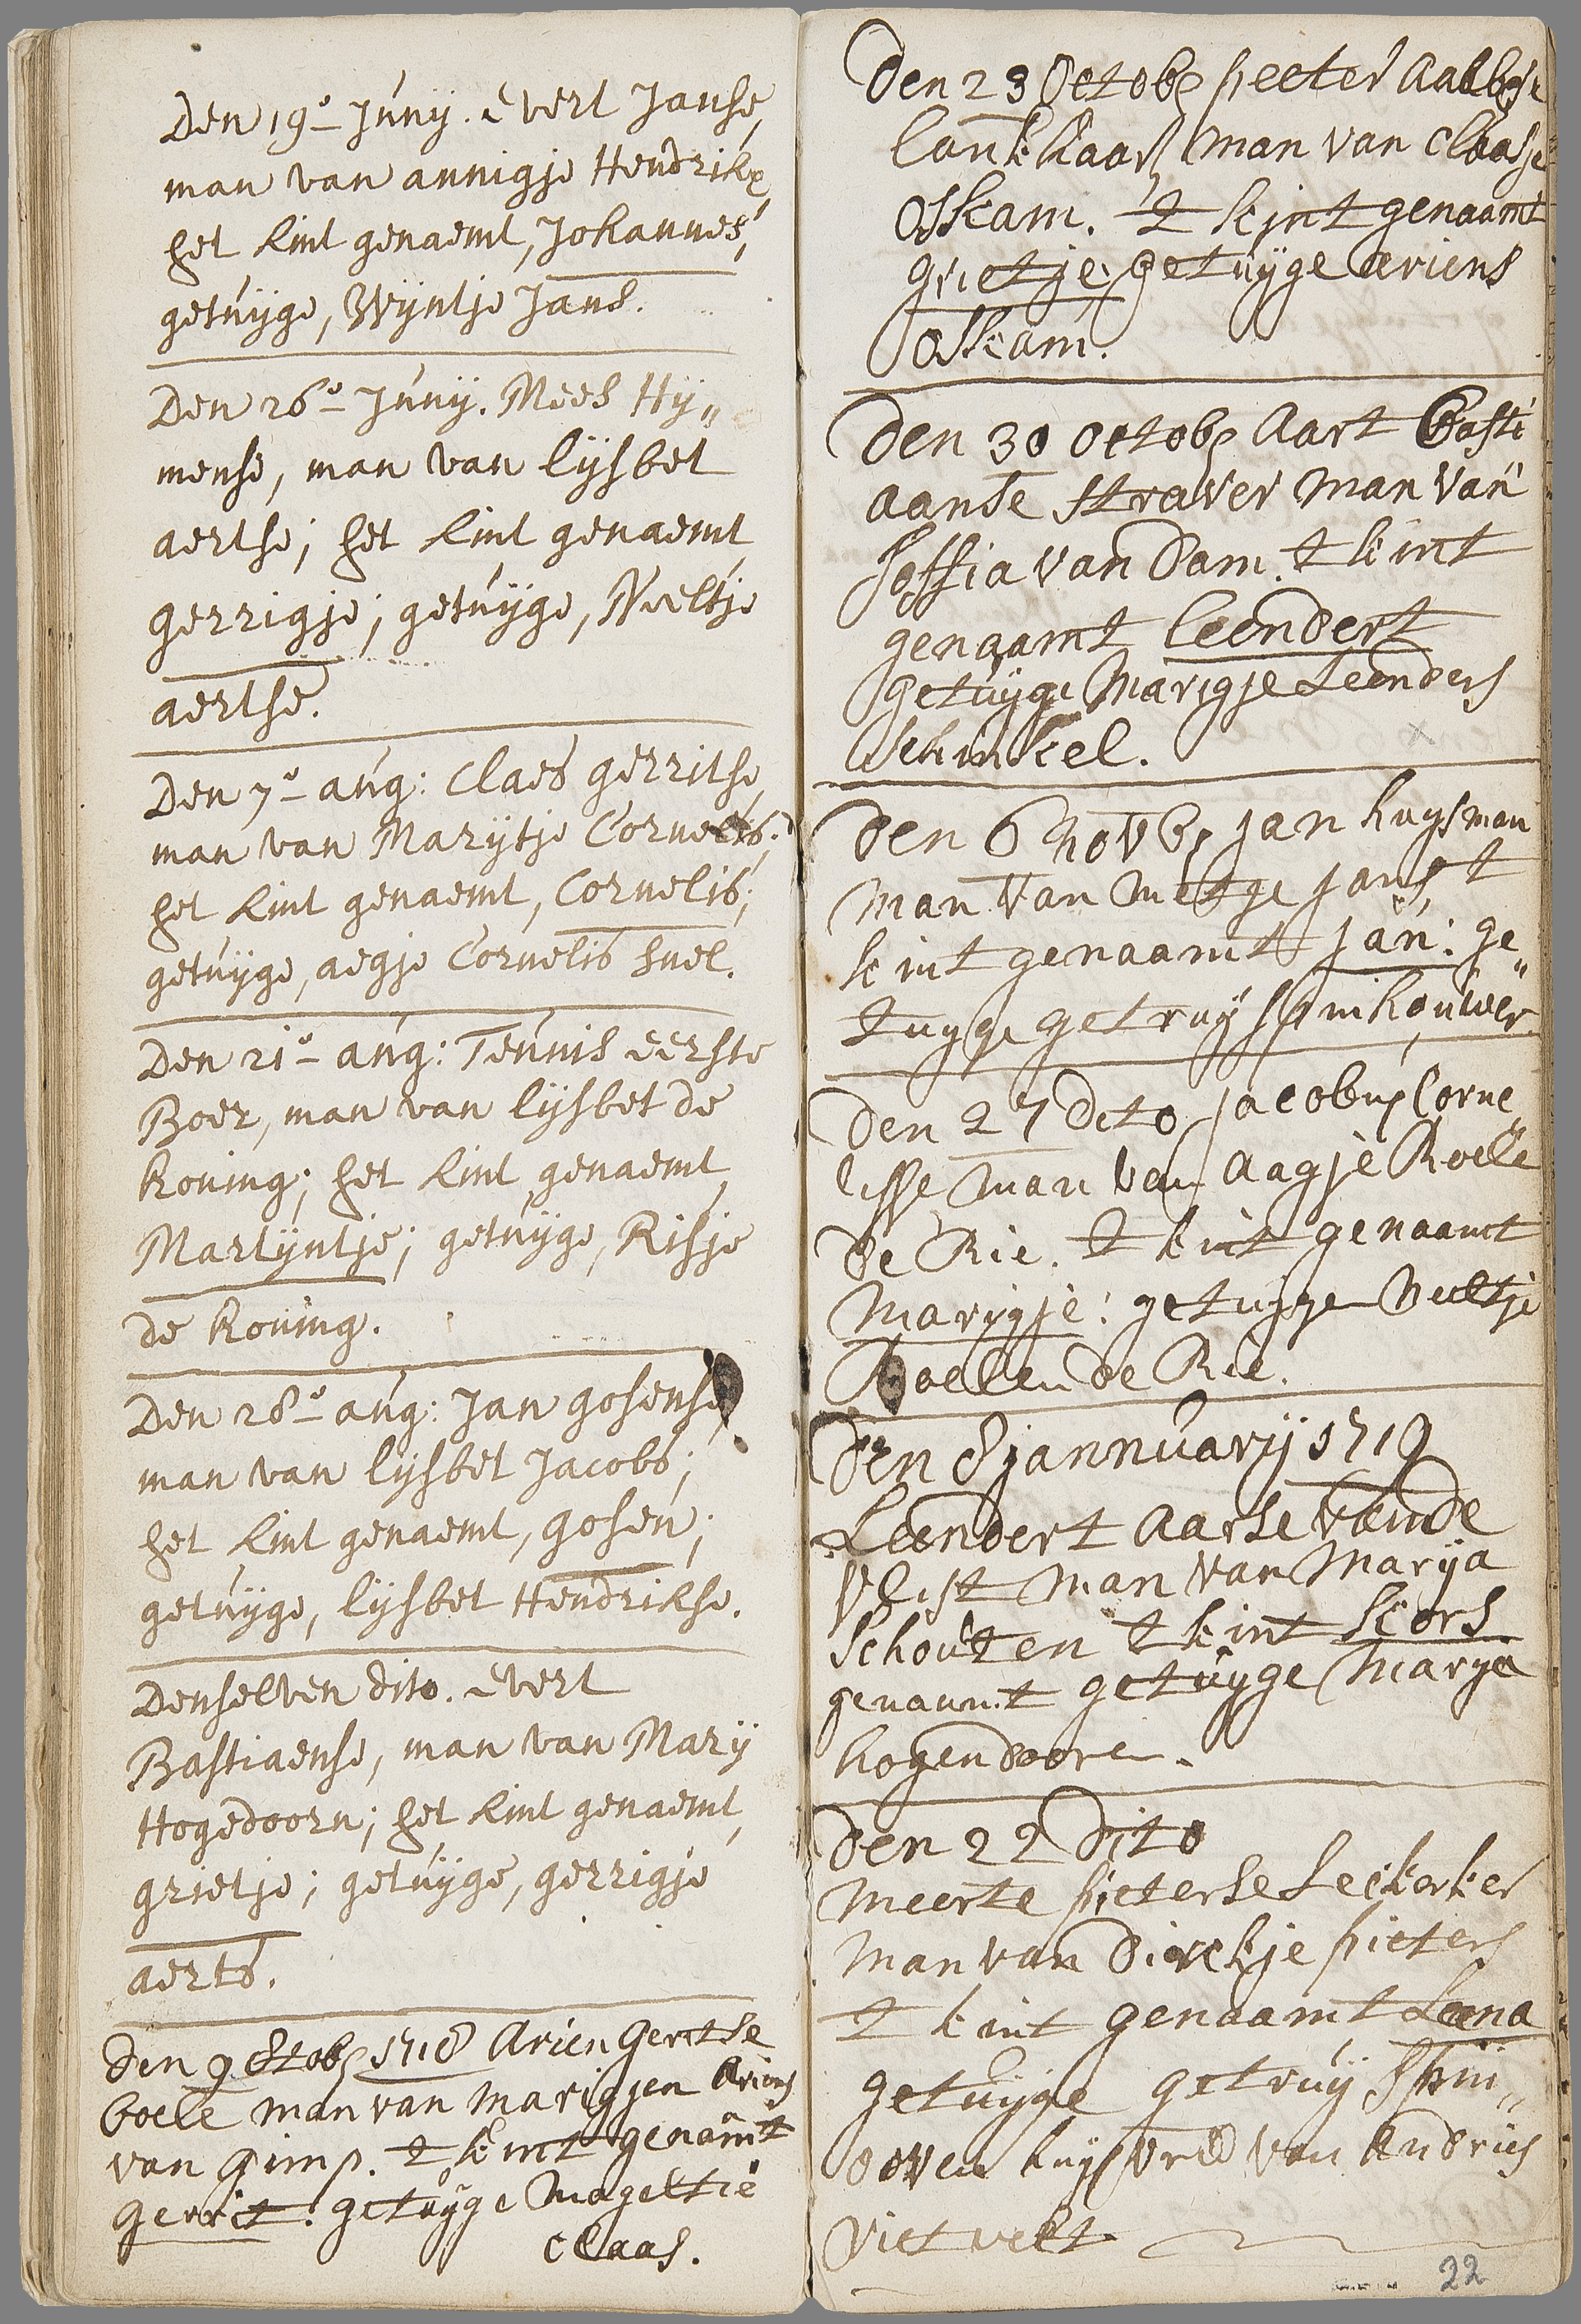 Den 19º Junij. Evert Janse,
man van annigje Hendrikx,
het kint genaemt, Johannes,
getuijge, Wijntje Jans.
Den 26º Junij. Mees Hij„
mense, man van lijsbet
aertse; het kint genaemt
gerrigje; getuijge, Neeltje
aertse.
Den 7º aug: Claes gerritse,
man van Marijtje Cornelis;
het kint genaemt, Cornelis;
getuijge, aegje Cornelis snel.
Den 21º aug: Teunis eerste
Boer, man van lijsbet de
koning; het kint genaemt,
Martijntje; getuijge, Risje
de koning.
Den 28º aug: Jan gosense,
man van lijsbet Jacobs;
het kint genaemt, gosen;
getuijge, lijsbet Hendrikse.
Denselven dito. Evert
Bastiaense, man van Marij
Hogedoorn; het kint genaemt,
grietje; getuijge, gerrigje
aerts.
Den 9 8tob 1718 Arien Geritse
boele man van marigjen Ariens
van Gimp. t kint genamt
Gerrit. getuijge Mageltie
Claas.
Den 23 Octob peeter
lonkkaar man van claasje
oskam. 't kint genaamt
grietje. getuijge aeriens
oskam.
Den 30 octob Aart Basti
aanse straver man van
soffia van Dam. t kint
genaamt leendert
getuijge Marigje Leenders
schinkel.
Den 6 novb, jan huijsman
man van metje jans, t
kint genaamt jan: ge„
tuyge getruij spinhouwer
Den 27 dcto jacobus Corne
lisse man van Aagje Roele
de Rie. t kint genaamt
Marijgje: getuijge neeltje
Roelen de Rie.
Den 8 jannuarij 1719
Leendert Aarse vande
vlist man van Marija
schouten t kint kors
genaamt getuijge Marija
hogendoorn.
Den 22 Dito
meerte pieterse Leckerker
man van Dirckje pieters
t kint genaamt Leena
getuijge getruij spin„
oowen huijsvrou van Andries
vietvelt
22